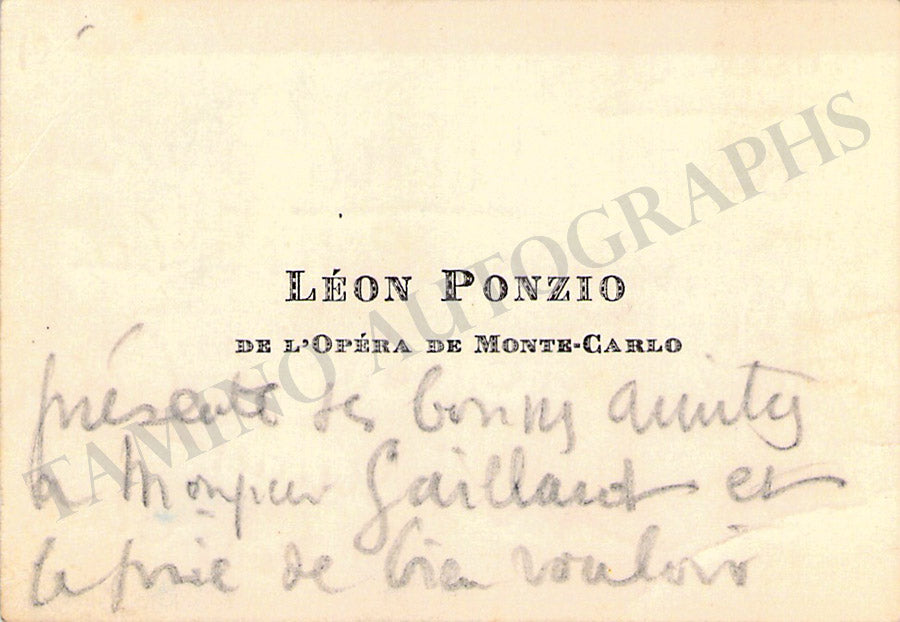 LÉON PONZIO
DE L'OPÉRA DE MONTE-CARLO
présente ses bonnes amitiés
à Monsieur Gaillard et
le prie de bien vouloir
TAMINO AUTOGRAPHS